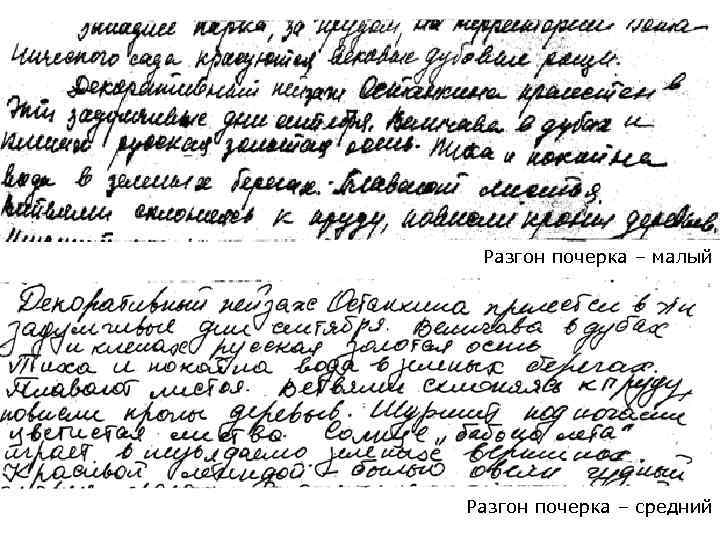 западнее парка, за прудом, на территории Бота-
нического сада красуются вековые дубовые рощи.
Декоративный пейзаж Останкина прелестен в
эти задумчивые дни сентября. Величава в дубах и
кленах русская золотая осень. Тиха и покойна
вода в зеленых берегах. Плавают листья.
Ветвями склонясь к пруду, повисли кроны деревьев.
Разгон почерка – малый
Декоративный пейзаж Останкина прелестен в эти
задумчивые дни сентября. Величава в дубах
и кленах русская золотая осень
Тиха и покойна вода в зеленых берегах.
Плавают листья. Ветвями склонясь к пруду,
повисли кроны деревьев. Шуршит под ногами
цветистая листва. Солнце „бабьего лета"
играет в неувядаемо зеленых вершинах.
Красивой легендой – былью овеян чудный
Разгон почерка – средний